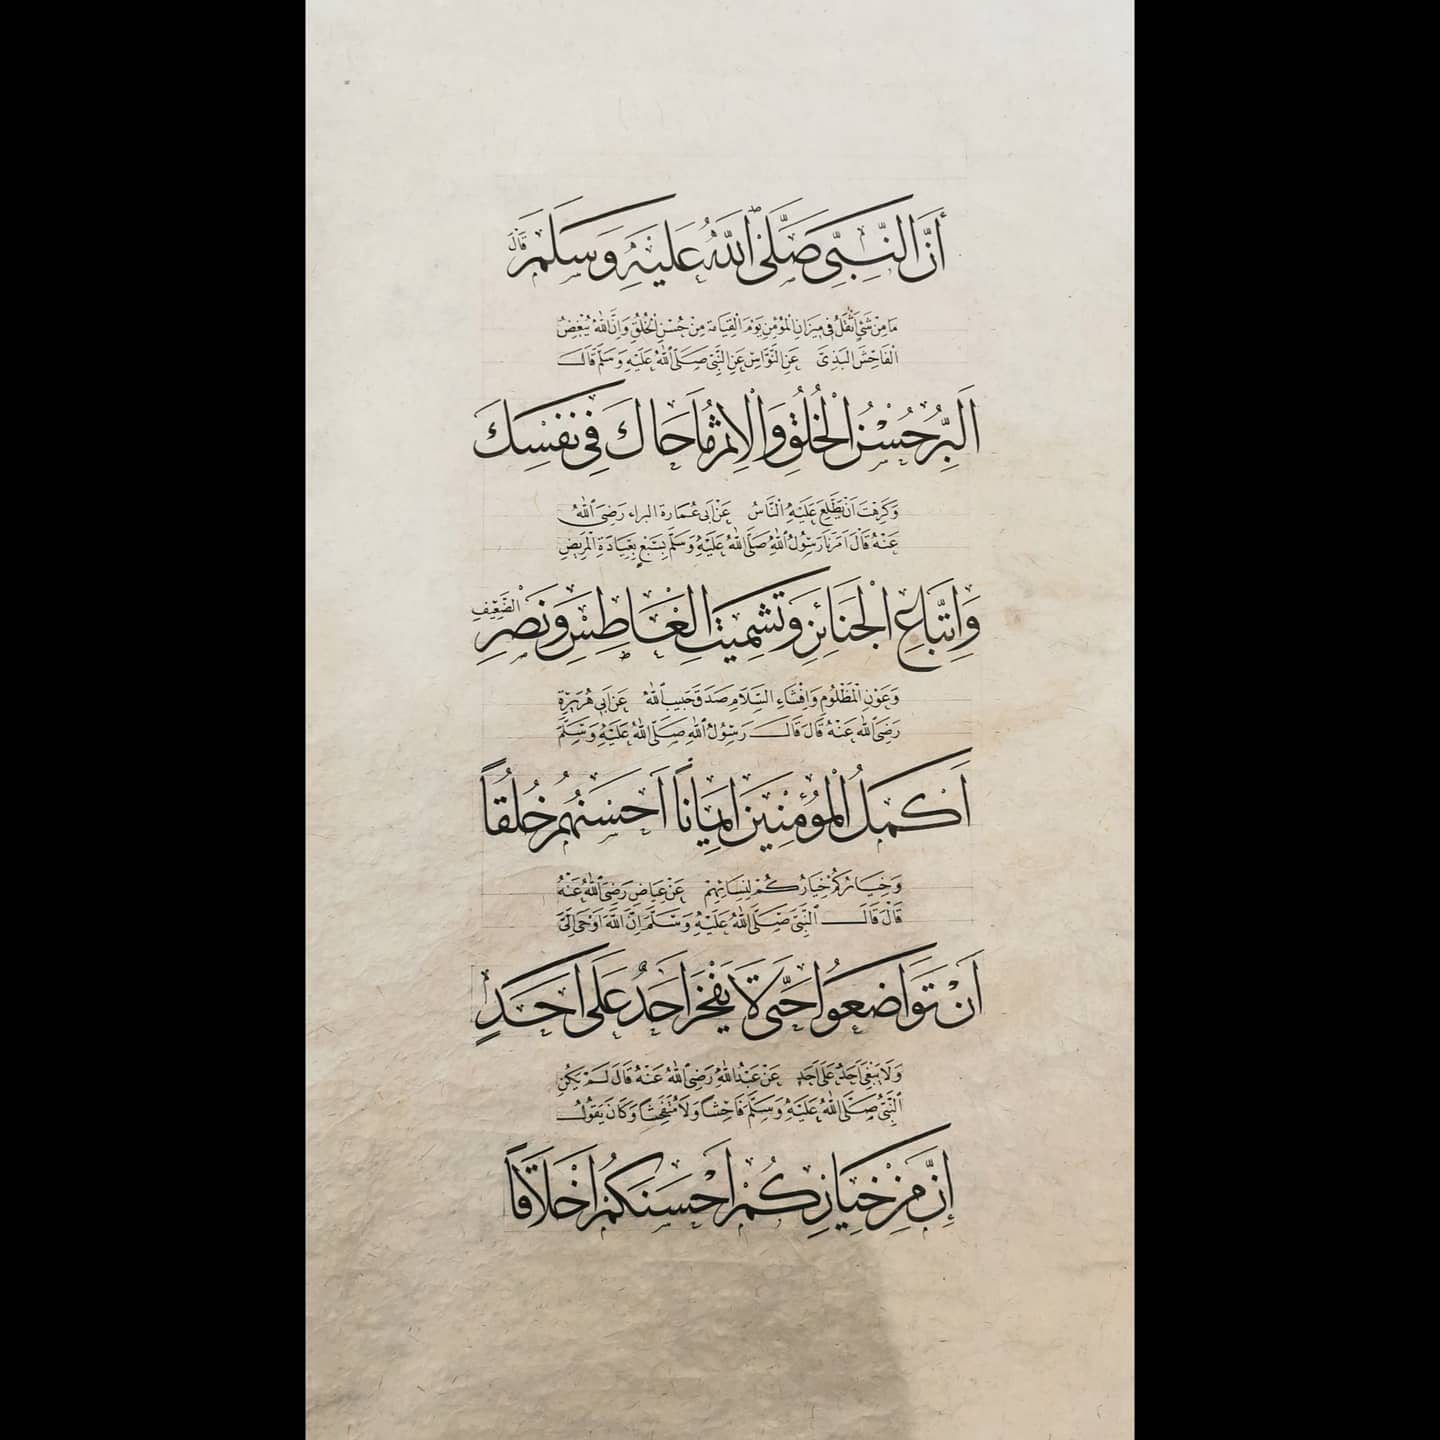 أَنَّ النَّبِيَّ صَلَّى اللهُ عَلَيْهِ وَسَلَّمَ قَالَ
مَا مِنْ شَيْءٍ أَثْقَلُ فِي مِيزَانِ الْمُؤْمِنِ يَوْمَ الْقِيَامَةِ مِنْ حُسْنِ الْخُلُقِ وَإِنَّ اللهَ يُبْغِضُ
الْفَاحِشَ الْبَذِيَّ عَنِ النَّوَّاسِ عَنِ النَّبِيِّ صَلَّى اللهُ عَلَيْهِ وَسَلَّمَ قَالَ
اَلْبِرُّ حُسْنُ الْخُلُقِ وَالْاِثْمُ مَا حَاكَ فِي نَفْسِكَ
وَكَرِهْتَ اَنْ يَطَّلِعَ عَلَيْهِ النَّاسُ عَنْ اَبِي عُمَارَةَ الْبَرَاءِ رَضِيَ اللهُ
عَنْهُ قَالَ اَمَرَنَا رَسُولُ اللهِ صَلَّى اللهُ عَلَيْهِ وَسَلَّمَ بِسَبْعٍ بِعِيَادَةِ الْمَرِيضِ
وَاِتِّبَاعِ الْجَنَائِزِ وَتَشْمِيتِ الْعَاطِسِ وَنَصْرِ الضَّعِيفِ
وَعَوْنِ الْمَظْلُومِ وَاِفْشَاءِ السَّلَامِ صَدَقَ حَبِيبُ اللهِ عَنْ اَبِي هُرَيْرَةَ
رَضِيَ اللهُ عَنْهُ قَالَ قَالَ رَسُولُ اللهِ صَلَّى اللهُ عَلَيْهِ وَسَلَّمَ
اَكْمَلُ الْمُؤْمِنِينَ اِيمَانًا اَحْسَنُهُمْ خُلُقًا
وَخِيَارُكُمْ خِيَارُكُمْ لِنِسَائِهِمْ عَنْ عِيَاضٍ رَضِيَ اللهُ عَنْهُ
قَالَ قَالَ النَّبِيُّ صَلَّى اللهُ عَلَيْهِ وَسَلَّمَ اِنَّ اللهَ اَوْحَى اِلَيَّ
اَنْ تَوَاضَعُوا حَتَّى لَا يَفْخَرَ اَحَدٌ عَلَى اَحَدٍ
وَلَا يَبْغِيَ اَحَدٌ عَلَى اَحَدٍ عَنْ عَبْدِ اللهِ رَضِيَ اللهُ عَنْهُ قَالَ لَمْ يَكُنِ
النَّبِيُّ صَلَّى اللهُ عَلَيْهِ وَسَلَّمَ فَاحِشًا وَلَا مُتَفَحِّشًا وَكَانَ يَقُولُ
إِنَّ مِنْ خِيَارِكُمْ اَحْسَنَكُمْ اَخْلَاقًا